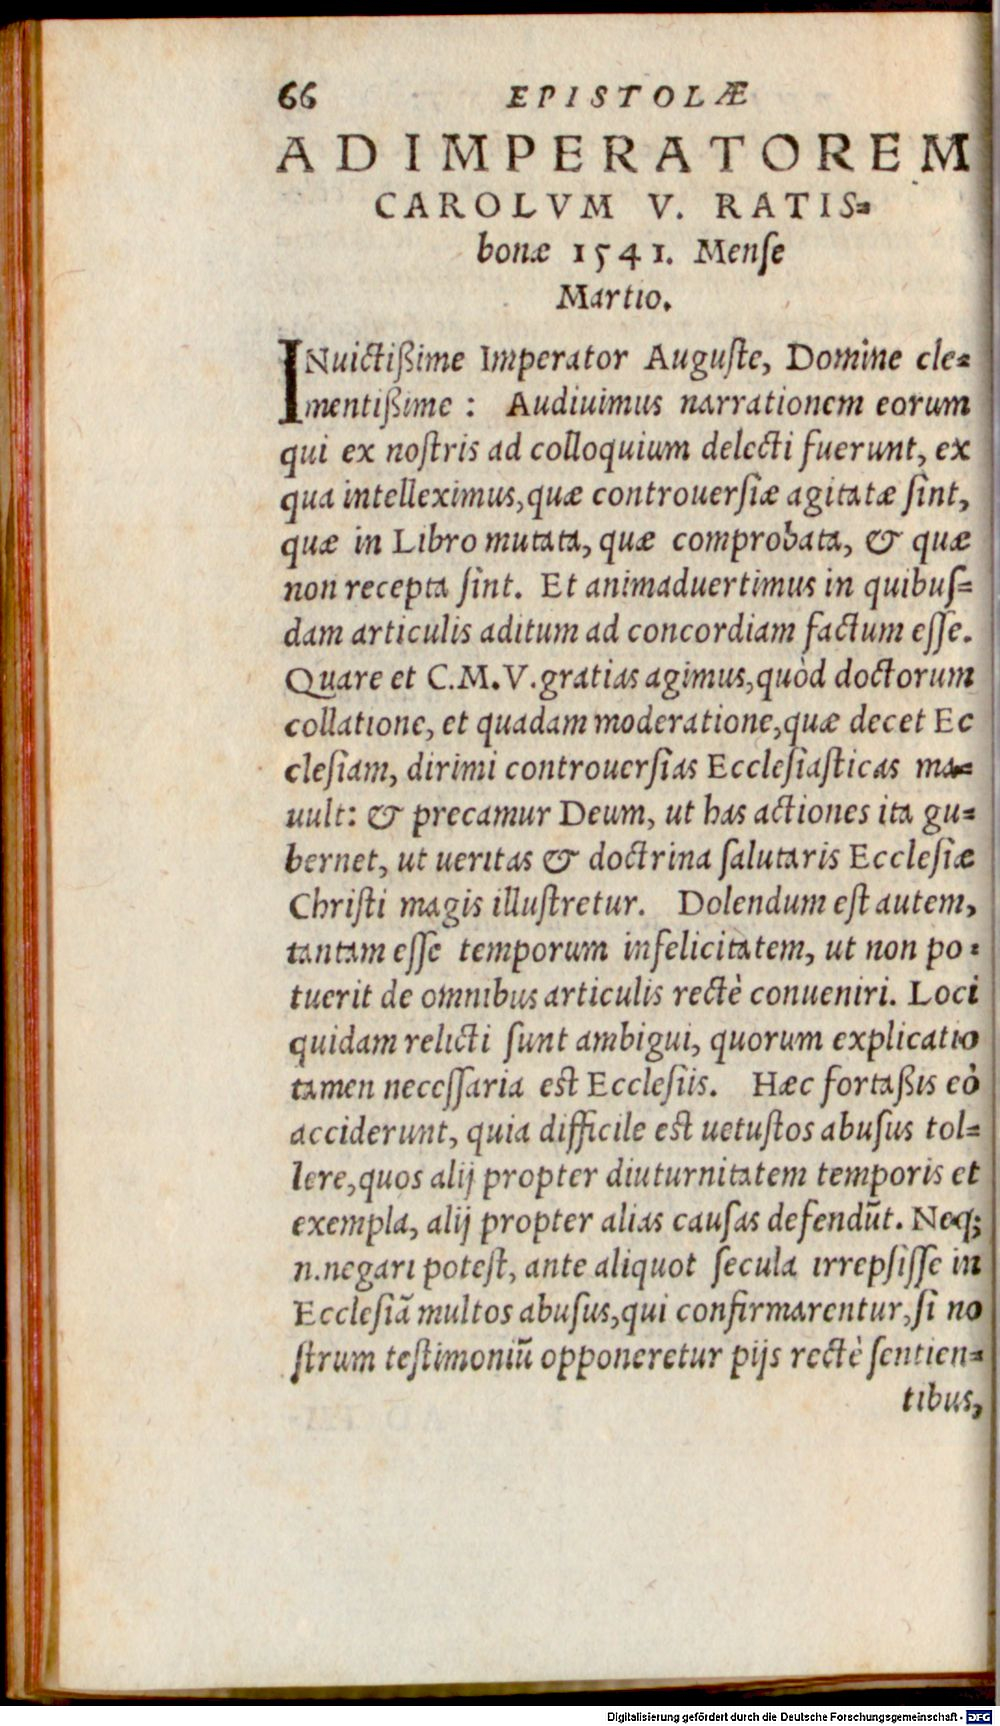 66 EPISTOLÆ
AD IMPERATOREM
CAROLVM V. RATIS=
bonæ 1541. Menſe
Martio.
INuictißime Imperator Auguſte, Domine cle=
mentißime : Audiuimus narrationem eorum
qui ex noſtris ad colloquium delecti fuerunt, ex
qua intelleximus, quæ controuerſiæ agitatæ ſint,
quæ in Libro mutata, quæ comprobata, & quæ
non recepta ſint. Et animaduertimus in quibuſ=
dam articulis aditum ad concordiam factum eſſe.
Quare et C.M.V. gratias agimus, quòd doctorum
collatione, et quadam moderatione, quæ decet Ec
cleſiam, dirimi controuerſias Eccleſiaſticas ma=
uult: & precamur Deum, ut has actiones ita gu=
bernet, ut ueritas & doctrina ſalutaris Eccleſiæ
Chriſti magis illuſtretur. Dolendum eſt autem,
tantam eſſe temporum infelicitatem, ut non po=
tuerit de omnibus articulis rectè conueniri. Loci
quidam relicti ſunt ambigui, quorum explicatio
tamen neceſſaria eſt Eccleſiis. Hæc fortaßis eò
acciderunt, quia difficile eſt uetuſtos abuſus tol=
lere, quos alij propter diuturnitatem temporis et
exempla, alij propter alias cauſas defendũt. Neq;
n. negari poteſt, ante aliquot ſecula irrepſiſſe in
Eccleſiã multos abuſus, qui confirmarentur, ſi no
ſtrum teſtimoniũ opponeretur pijs rectè ſentien=
tibus,
Digitalisierung gefördert durch die Deutsche Forschungsgemeinschaft - DFG